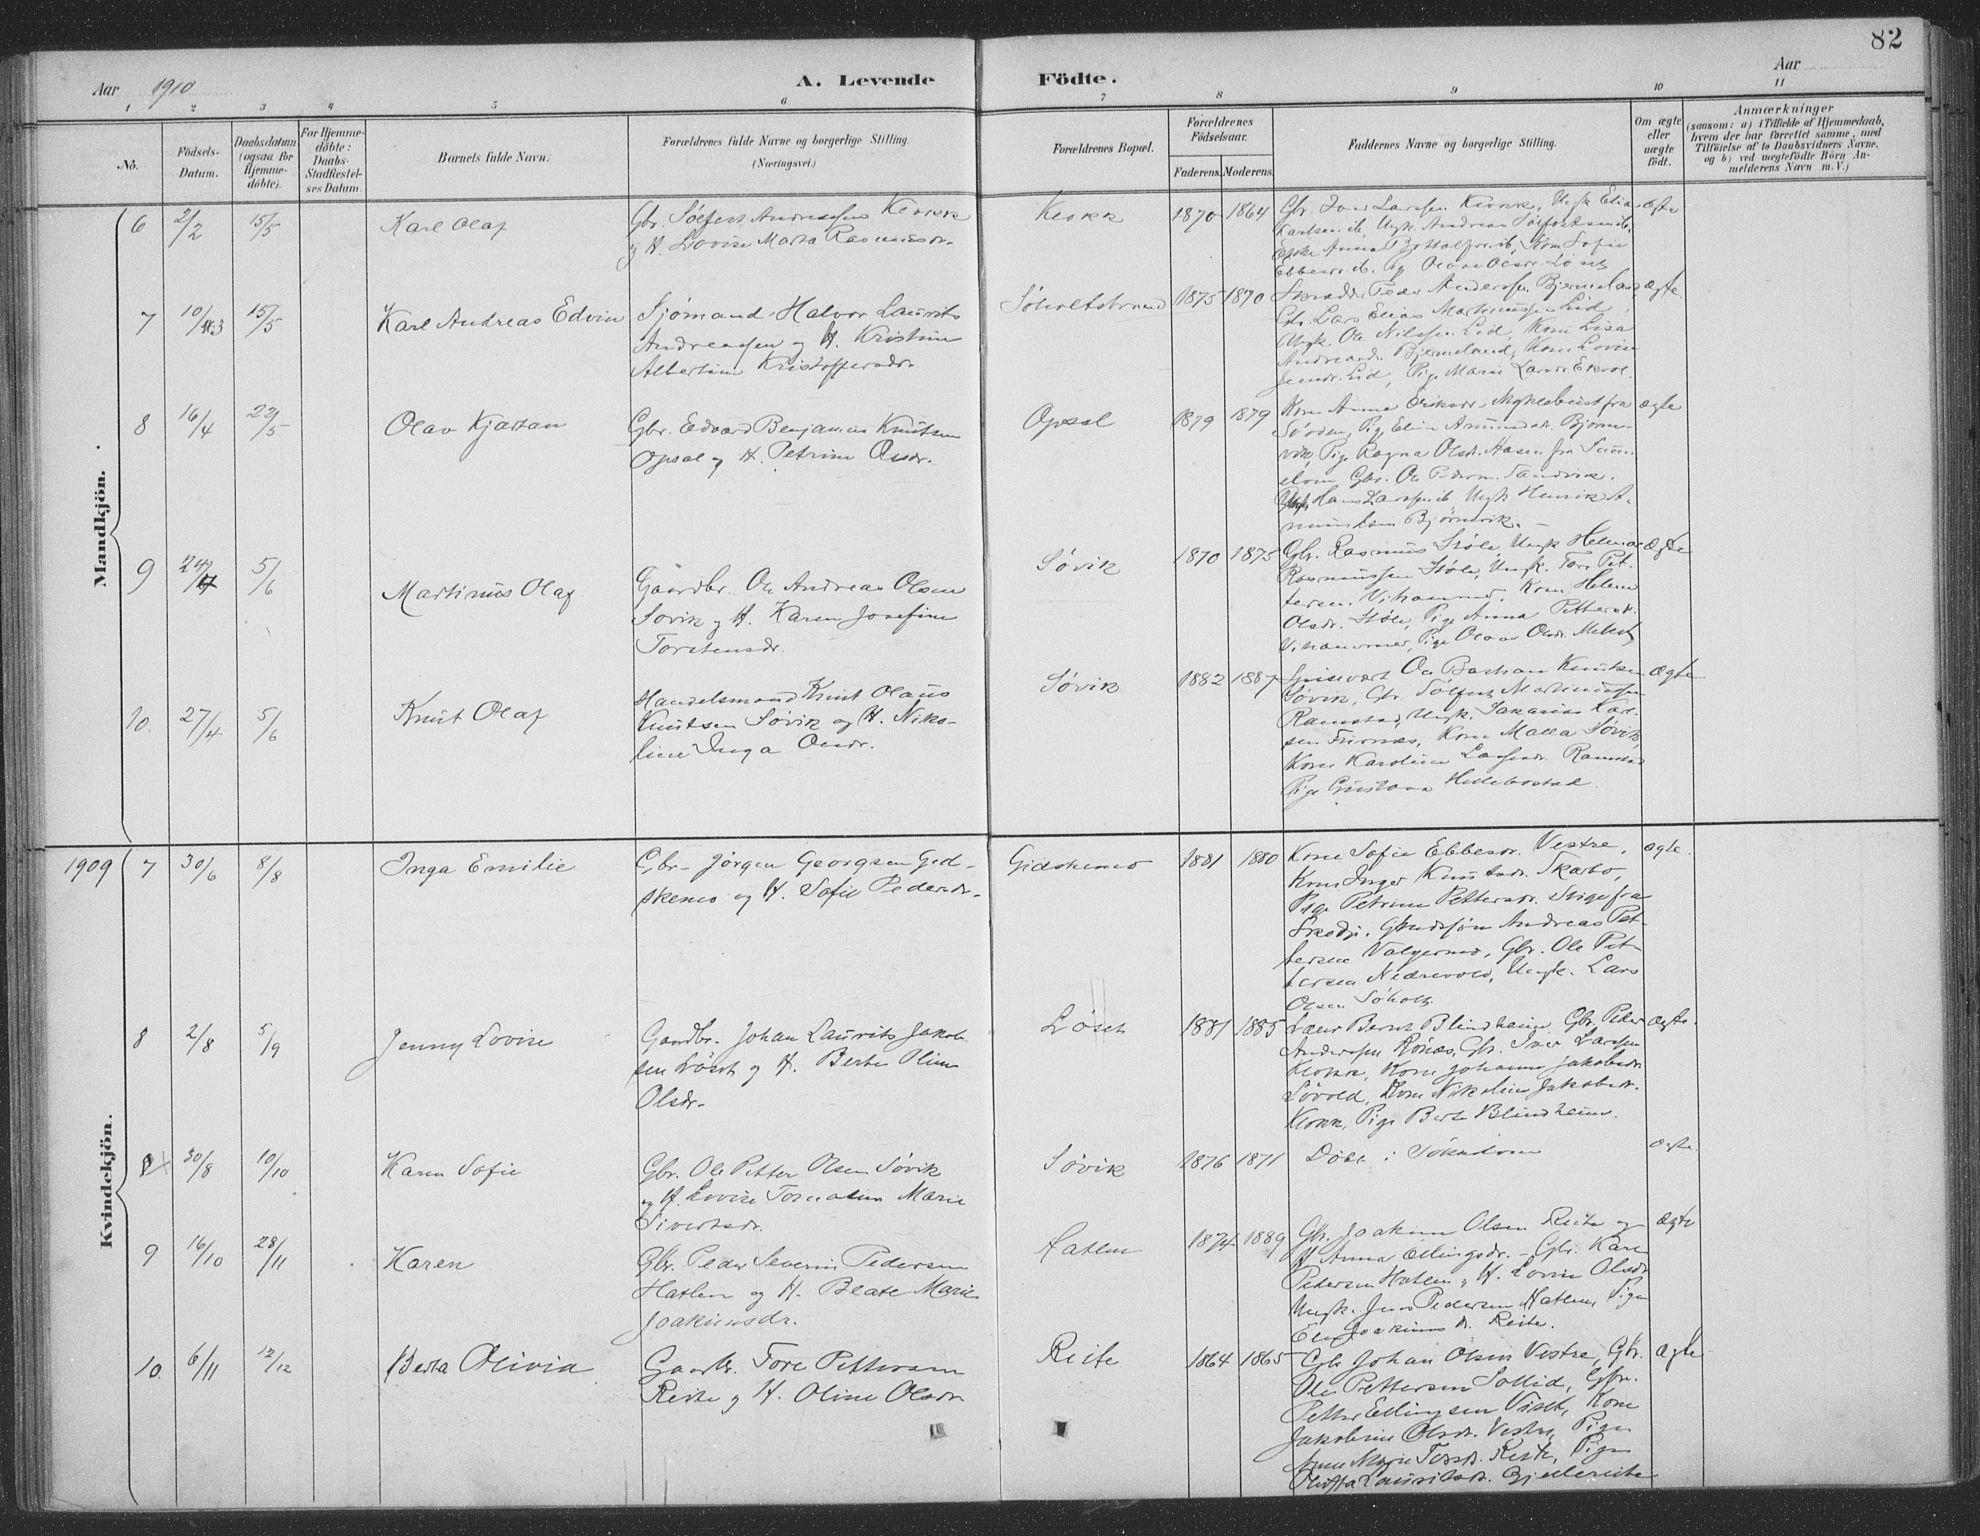 82
Aar 1910
A. Levende Födte.
Aar
1 2 3 4 5 6 7 8 9 10 11
No.
Födsels-Datum.
Daabsdatum (ogsaa for Hjemme-döbte).
For Hjemme-döbte: Daabs-Stadfæstel-ses Datum.
Barnets fulde Navn.
Forældrenes fulde Navne og borgerlige Stilling. (Næringsvei.)
Forældrenes Bopæl.
Forældrenes Födselsaar.
Faderens. Moderens.
Faddernes Navne og borgerlige Stilling.
Om ægte eller uægte født.
Anmærkninger
(saasom: a) i Tilfælde af Hjemmedaab, hvem der har forrettet samme, med Tilföielse af to Daabsvidners Navne, og b) ved uægtefödte Börn An-melderens Navn m. V.)
Mandkjön.
6 2/2 15/5 Karl Olaf
Gbr. Sølfest Andreassen Klokk
og H. Lovise Marta Rasmusdr.
Klokk 1870 1864
Gbr. Iver Larssen Klokk, Ungk. Elias
ægte
7 10/3 15/5 Karl Andreas Edvin
Sjømand Halvor Laurits
Andreassen og H. Kristine
Albertine Kristoffersdr.
Søholtstrand 1875 1870
Peder Anderssen Bjermeland,
Gbr. Lars Elias Martinussen Lid,
Ungk. Ole Nilssen Lid, Kone Lisa
Bjermeland, Kone Lovise
Lid, Pige Marie Larsdr. Ekrol.
ægte
8 16/4 22/5 Olav Kjartan
Gbr. Edvard Benjamin Knutsen
Opsal og H. Petrine Olsdr.
Opsal 1879 1879
Kone Anna Eriksdr. Myklebust fra
Pige Ragna Olsdr. Aasen fra
Gbr. Ole Sandvik.
Hans Larssen ib. Ungk. Henrik A-
mundsen Bjørnevik.
ægte
9 24/4 5/6 Martinus Olaf.
Gaardbr. Ole Andreas Olsen
Søvik og H. Karen Josefine
Torstensdr.
Søvik 1870 1875
Gbr. Rasmus Støle, Ungk. Helmer
Rasmussen Støle, Ungk. Tore Pet-
tersen Vihammer, Kone Helene
Olsdr. Støle, Pige Anna Pettersdr.
Vihammer, Pige Olava Olsdr.
ægte
10. 27/4 5/6 Knut Olaf
Handelsmand Knut Olaus
Knutsen Søvik og H. Niko-
line Inga Olsdr.
Søvik 1882 1887
Ole Bastian Knutsen
Søvik, Gbr. Sølfest Martinussen
Ramstad, Ungk. Sakarias Karl-
sen Furnæs, Kone Malla Søvik,
Kone Karoline Ramstad
Pige Gustava Hellebostad.
ægte
1909
Kvindekjön.
7 30/6 8/8 Inga Emilie
Gbr. Jørgen Georgsen Gid-
skemo og H. Sofie Pedersdr.
Gidskemo 1881 1880
Kone Sofie Ebbesdr. Vestre,
Kone Inger Knutsdr. Skarbø,
Pige Petrine Pettersdr. Stige fra
Skodje. Andreas Pet-
tersen Valgermo, Gbr. Ole Pet-
tersen Nedrevold, Ungk. Lars
Olsen Søholt.
ægte.
8 2/8 5/9 Jenny Lovise
Gaardbr. Johan Laurits Jakob-
sen Løset og H. Berte Oline
Olsdr.
Løset 1881 1885
Lærer Bernt Blindheim, Gbr. Peder
Anderssen Rønæs, Gbr. Iver Larssen
Klokk, Kone Johanne Jakobsdr.
Søvold, Kone Nikoline Jakobsdr.
Klokk, Pige Berte Blindheim.
ægte.
30/8 10/10 Karen Sofie
Gbr. Ole Petter Olsen Søvik
og H. Lovise Marie
Sivertsdr.
Søvik 1876 1871
Døbt i
ægte.
9 16/10 28/11 Karen
Gbr. Peder Severin Pedersen
Hatlen og H. Beate Marie
Joakimsdr.
Hatlen 1874 1889
Gbr. Joakim Olsen Reite og
H. Anna Ellingsdr. – Gbr. Karl
Pedersen Hatlen og H. Lovise Olsdr.
Ungk. Jens Pedersen Hatlen, Pige
Elen Joakimsdr. Reite.
ægte
10. 6/11 12/12 Berta Olivia
Gaardbr. Tore Pettersen
Reite og H. Oline Olsdr.
Reite 1864 1865
Gbr. Johan Olsen Vestre, Gbr.
Ole Pettersen Sollid, Gbr.
Petter Ellingsen Viset, Kone
Jakobine Olsdr. Vestre, Pige
Anne Marie Torsdr. Reite, Pige
Lauritsdr. Gjellereite
ægte